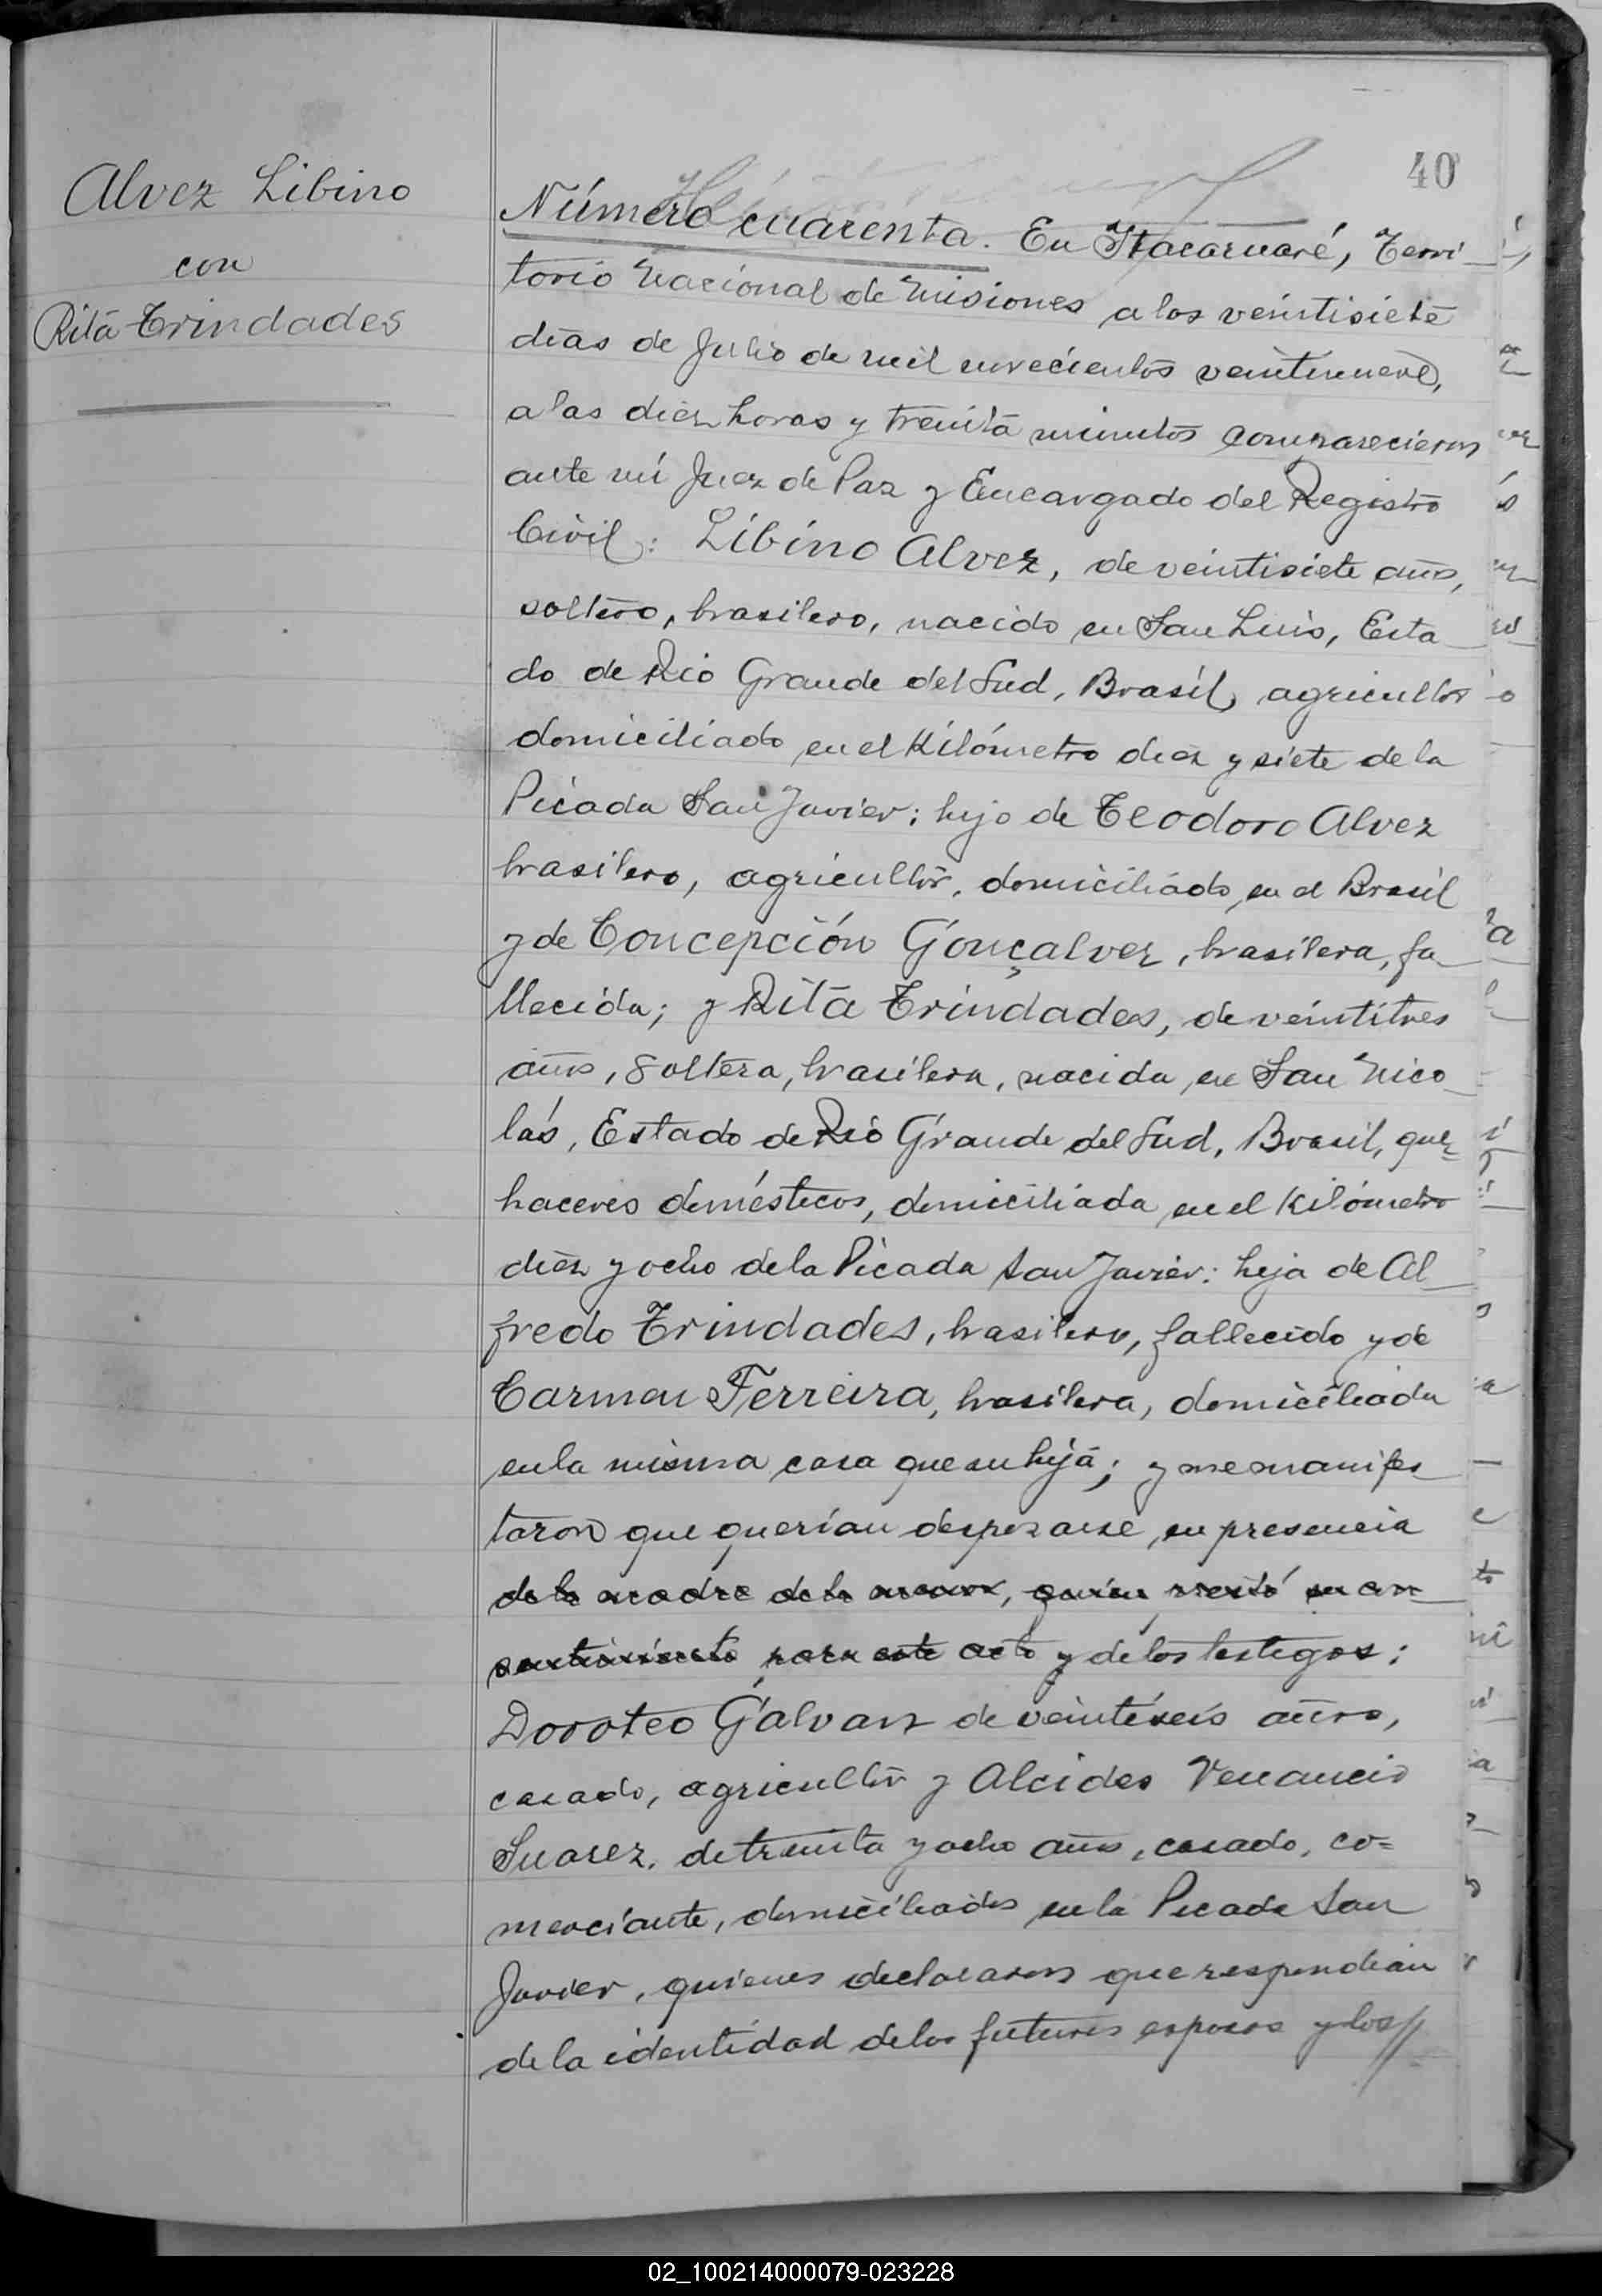 40
Alvez Libino
con
Rita Trindades
Número cuarenta. En Itacaruaré, Terri-
torio Nacional de Misiones a los veintisiete
días de Julio de mil novecientos veintinueve,
a las diez horas y treinta minutos comparecieron
ante mí Juez de Paz y Encargado del Registro
Civil: Libino Alvez, de veintisiete años,
soltero, brasilero, nacido en San Luis, Esta-
do de Rio Grande del Sud, Brasil, agricultor
domiciliado en el Kilómetro diez y siete de la
Picada San Javier; hijo de Teodoro Alvez
brasilero, agricultor, domiciliado en el Brasil
y de Concepción Gonçalvez, brasilera, fa-
llecida; y Rita Trindades, de veintitres
años, soltera, brasilera, nacida en San Nico-
lás, Estado de Rio Grande del Sud, Brasil, que=
haceres domésticos, domiciliada en el Kilómetro
diez y ocho de la Picada San Javier: hija de Al-
fredo Trindades, brasilero, fallecido y de
Carmen Ferreira, brasilera, domiciliada
en la misma casa que su hija; y me manifes-
taron que querían desposarse en presencia
de la madre de la menor, quien prestó su con-
sentimiento para este acto y de los testigos:
Doroteo Galvan de veintiseis años,
casado, agricultor y Alcides Venancio
Suarez, de treinta y ocho años, casado, co=
merciante, domiciliados en la Picada San
Javier, quienes declararon que respondían
de la identidad de los futuros esposos y los//
02_100214000079-023228